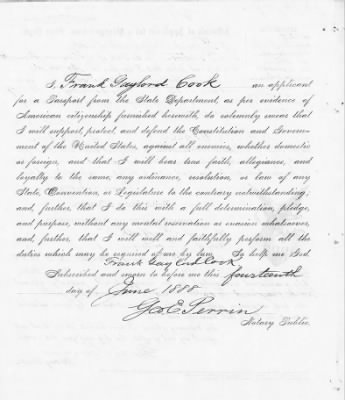 I, Frank Gaylord Cook an applicant
for a Passport from the State Department, as per evidence of
American citizenship furnished herewith, do solemnly swear that
I will support, protect, and defend the Constitution and Govern-
ment of the United States, against all enemies, whether domestic
or foreign, and that I will bear true faith, allegiance, and
loyalty to the same, any ordinance, resolution, or law of any
State, Convention, or Legislature to the contrary notwithstanding;
and, further, that I do this with a full determination, pledge,
and purpose, without any mental reservation or evasion whatsoever,
and, further, that I will well and faithfully perform all the
duties which may be required of me by law. So help me God.
Frank Gaylord Cook
Subscribed and sworn to before me this fourteenth
day of June 1888
Geo E Perrin
Notary Public.